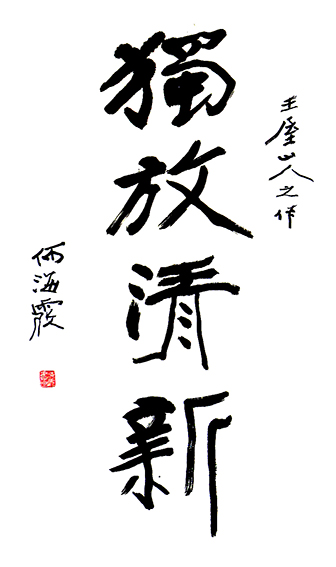 王屋山人之作
獨放清新
何海霞